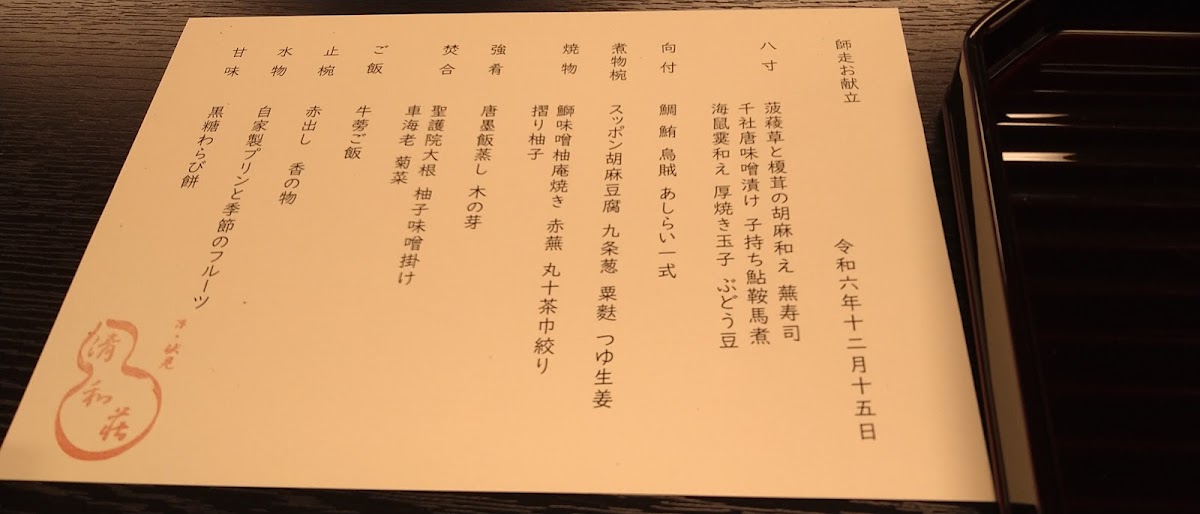 師走お献立
令和六年十二月十五日
八寸
菠薐草と榎茸の胡麻和え 蕪寿司
千社唐味噌漬け 子持ち鮎鞍馬煮
海鼠霙和え 厚焼き玉子 ぶどう豆
向付
鯛 鮪 烏賊 あしらい一式
煮物椀
スッポン胡麻豆腐 九条葱 粟麩 つゆ生姜
焼物
鰤味噌柚庵焼き 赤蕪 丸十茶巾絞り
摺り柚子
強肴
唐墨飯蒸し 木の芽
焚合
聖護院大根 柚子味噌掛け
車海老 菊菜
ご飯
牛蒡ご飯
止椀
赤出し 香の物
水物
自家製プリンと季節のフルーツ
甘味
黒糖わらび餅
京・伏見
清和荘